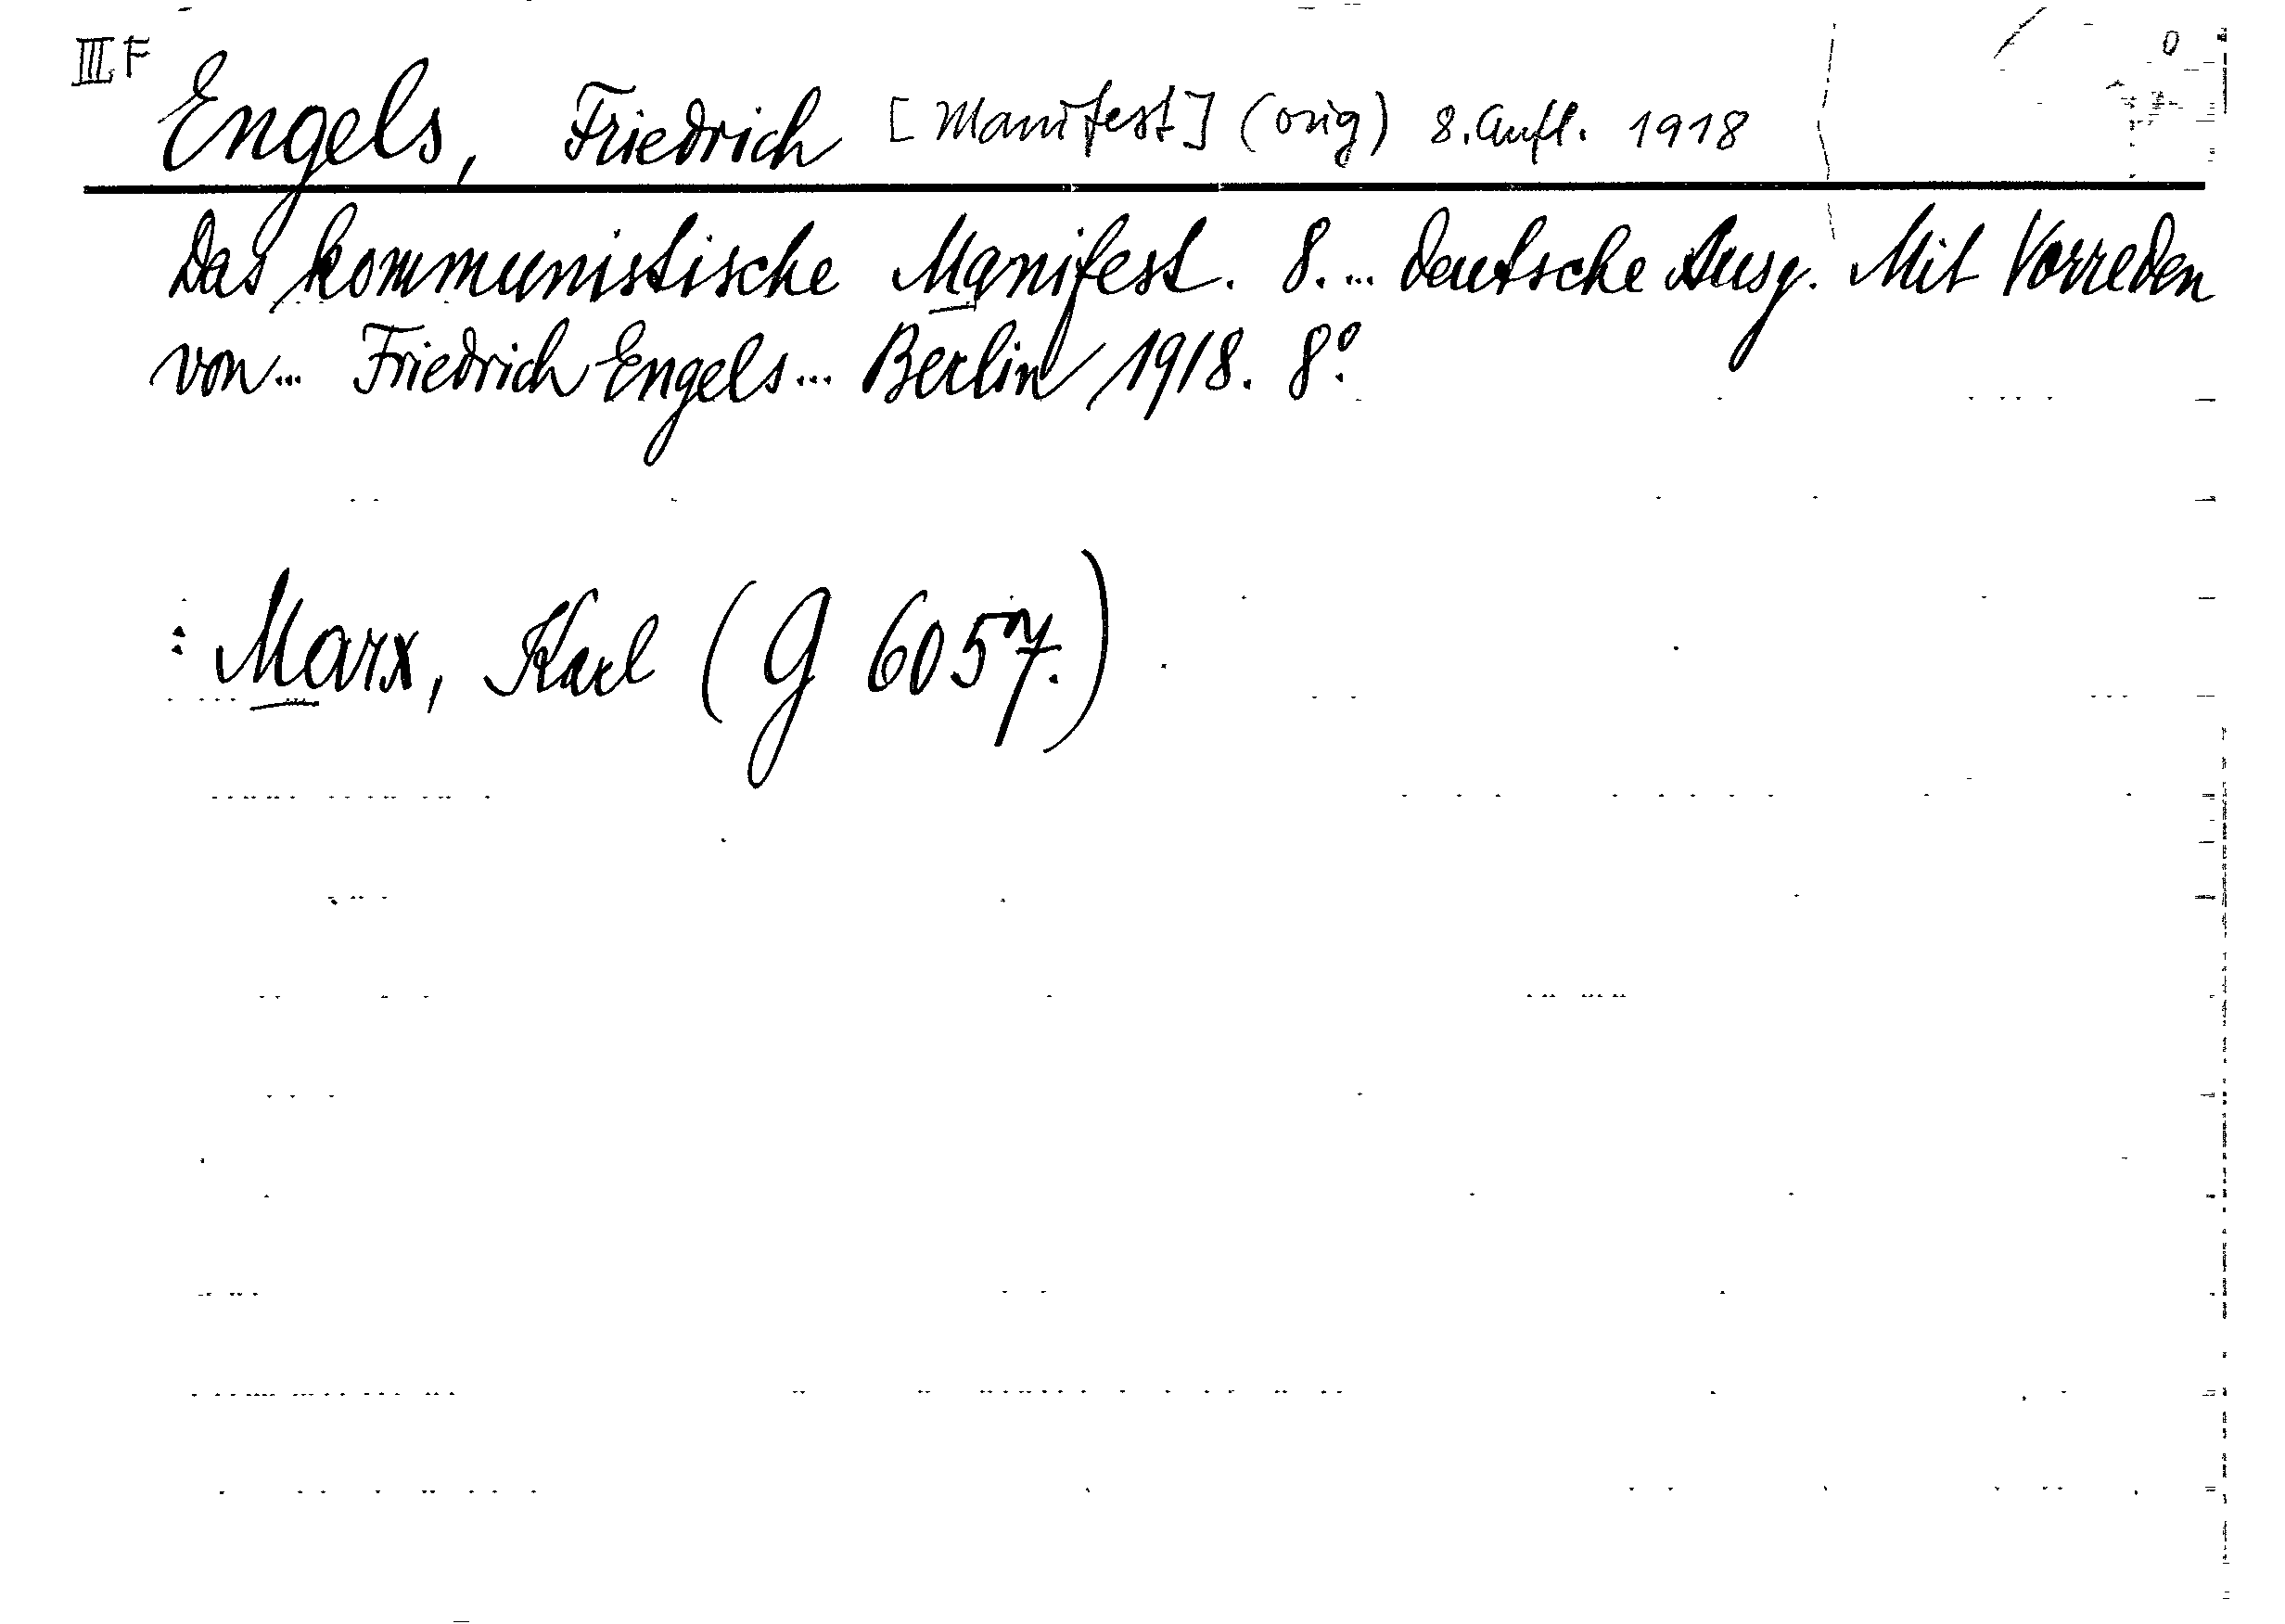 III F
Engels, Friedrich [Manifest] (orig) 8. Aufl. 1918
Das kommunistische Manifest. 8. ... deutsche Ausg. Mit Vorreden
von ... Friedrich Engels ... Berlin 1918. 8°.
: Marx, Karl (G 6057.)